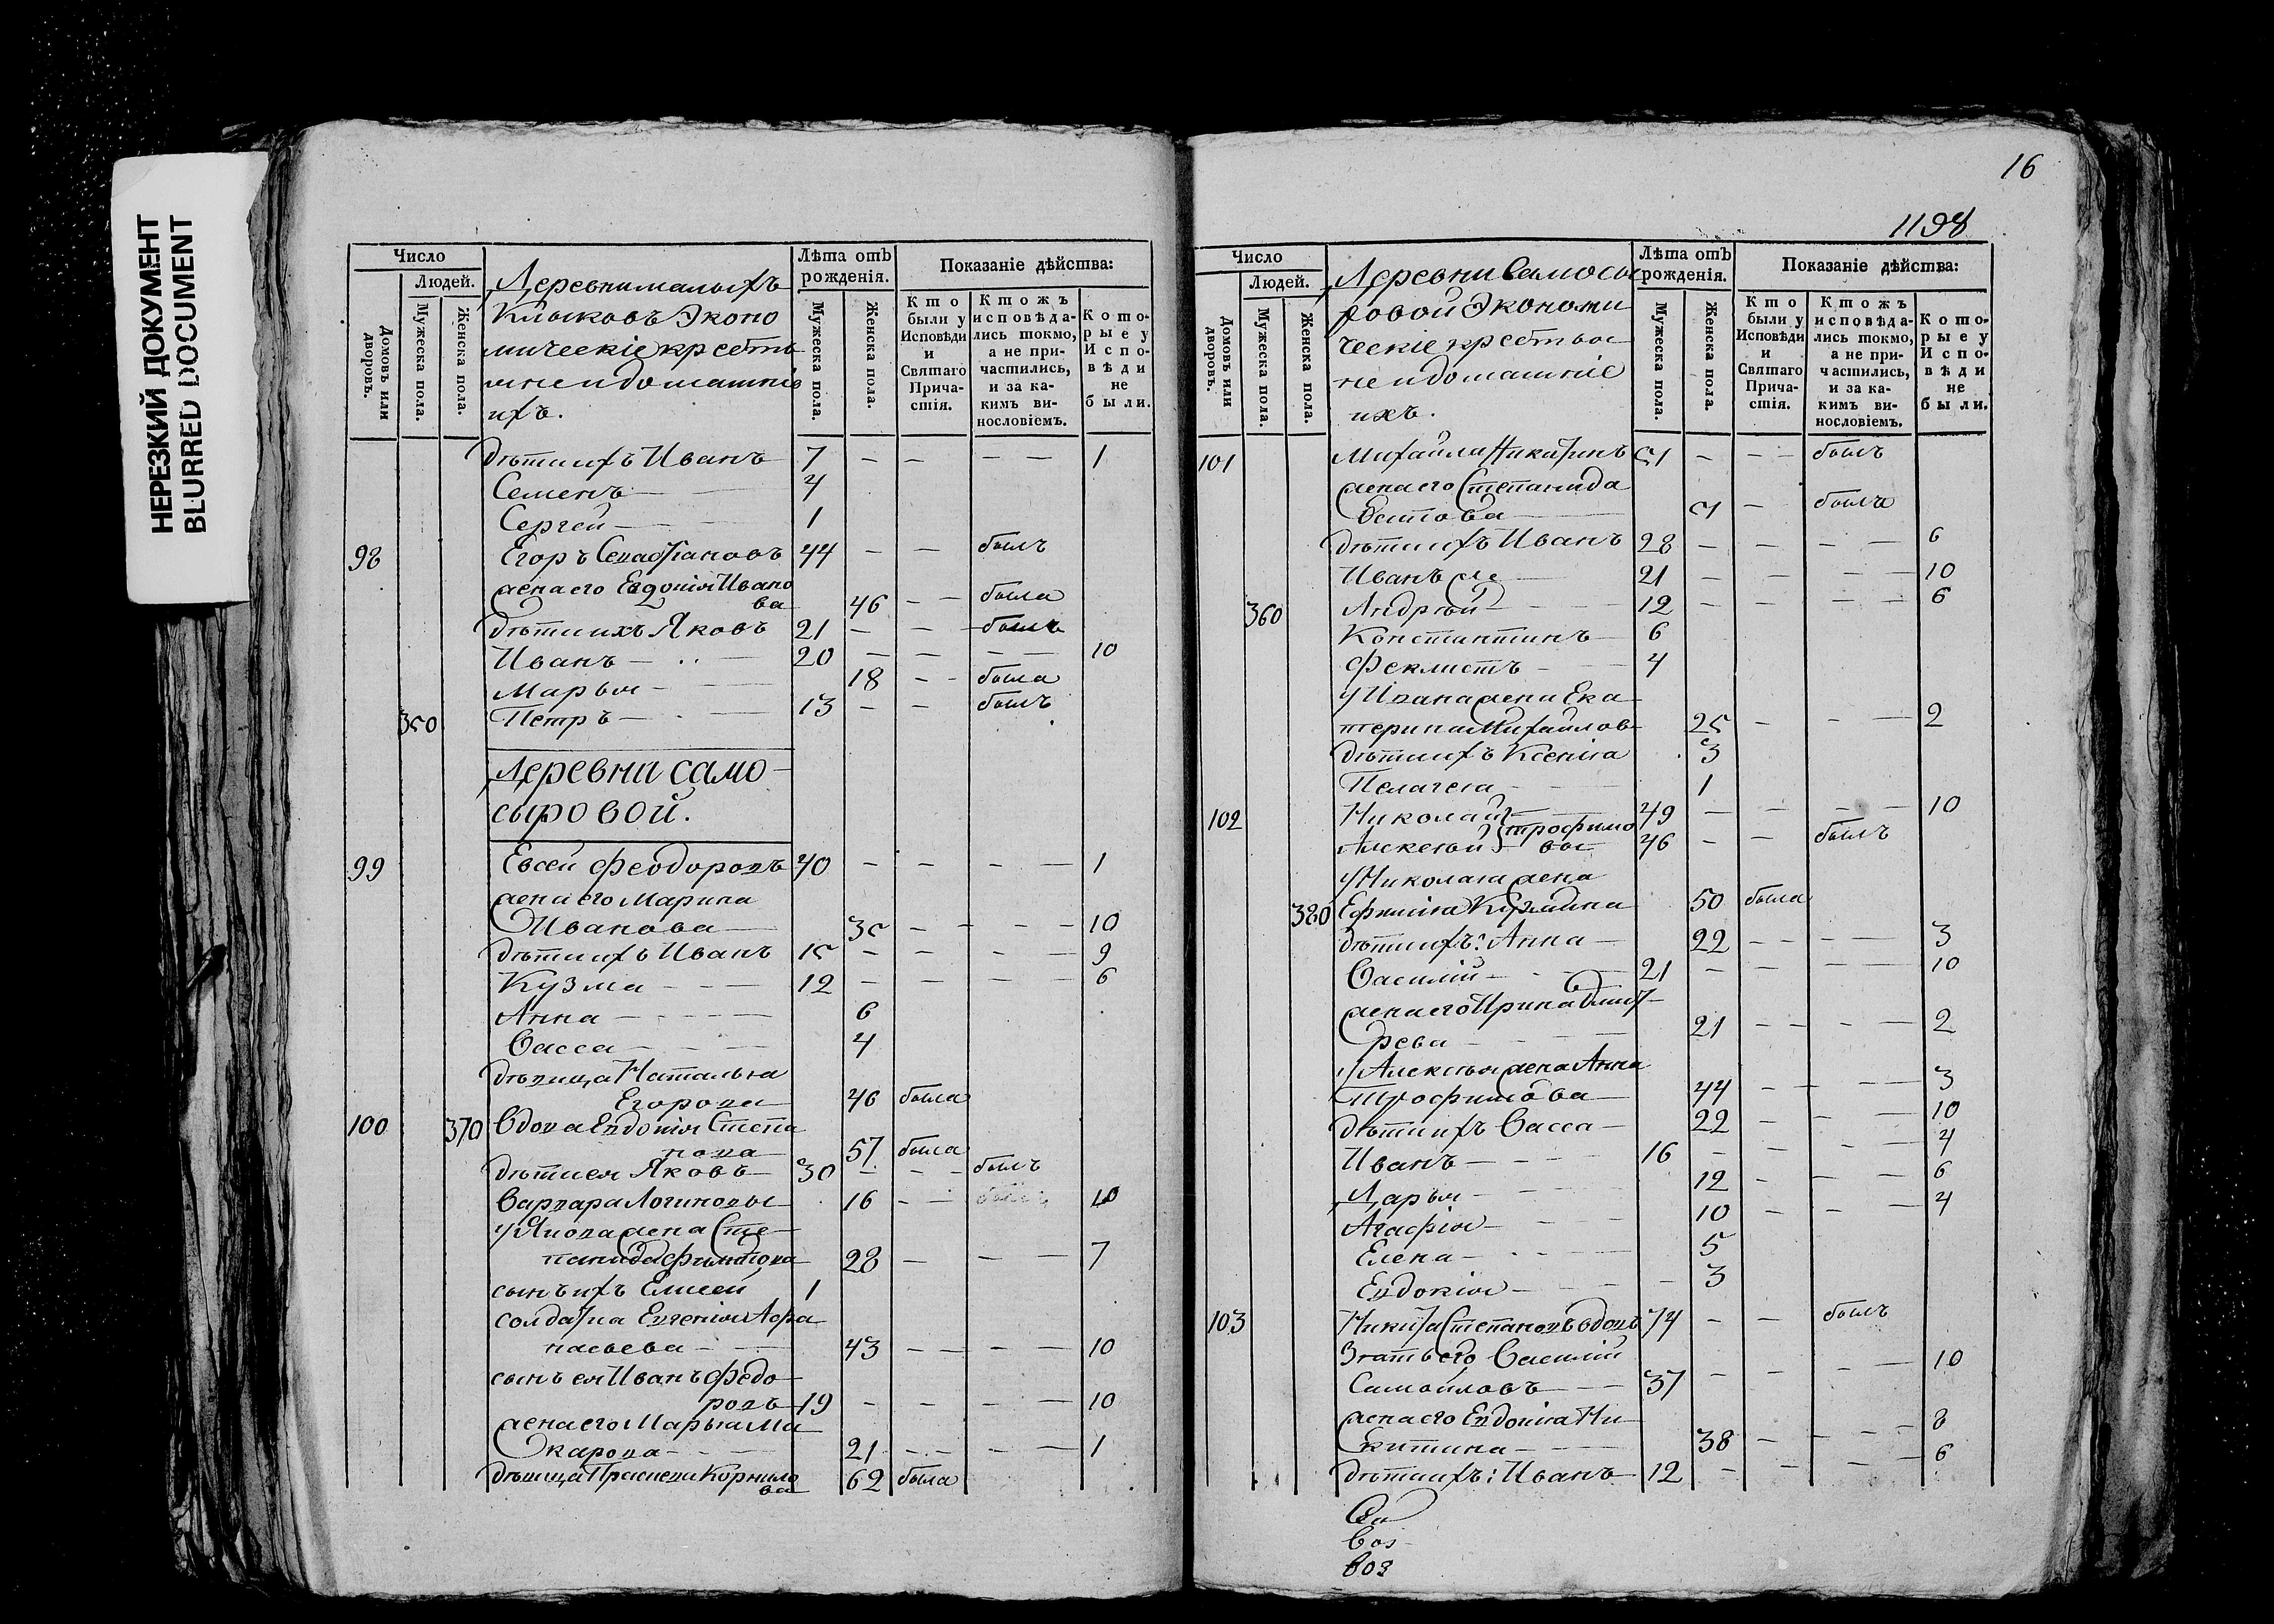 НЕРЕЗКИЙ ДОКУМЕНТ
BLURRED DOCUMENT
Число
Людей.
Домовъ или дворовъ.
Мужеска пола.
Женска пола.
Деревни малыхъ
Клыковъ Эконо
мическіе крестья
не и домашніе
ихъ.
Лѣта отъ рожденія.
Мужеска пола.
Женска пола.
Показаніе дѣйства:
Кто были у Исповѣди и Святаго Причастія.
Ктожъ исповѣдались токмо, а не причастились, и за какимъ винословіемъ.
Которые у Исповѣди не были.
дѣти ихъ Иванъ 7 — — — — 1
Семенъ 4
Сергей 1
98 Егоръ 44 — — былъ
жена его Евдокія Ивано
ва 46 — — была
дѣти ихъ Яковъ 21 — — былъ
Иванъ 20 — — — — 10
Марья 18 — — была
350 Петръ 13 — — былъ
Деревни Само-
сыровой.
99 Евсей Феодоровъ 40 — — — — 1
жена его Марина
Иванова 35 — — — — 10
дѣти ихъ Иванъ 15 — — — — 9
Кузма 12 — — — — 6
Анна 6
Васса 4
дѣвица Наталья
Егорова 46 была
100 370 Вдова Евдокія Степа
нова 57 была
дѣти ея Яковъ 30 — — — былъ
Варвара Логиновы 16 — — 10
у Якова жена Сте
панида 28 — — — 7
сынъ ихъ Елисей 1
солдатка Евгенія Афа
насьева 43 — — — — 10
сынъ ея Иванъ Федо
ровъ 19 — — — — 10
жена его Марья Ма
карова 21 — — — — 1
дѣвица Корнило
ва 62 была
16
1198
Число
Людей.
Домовъ или дворовъ.
Мужеска пола.
Женска пола.
Деревни Самосы
ровой Экономи
ческіе крестья
не и домашніе
ихъ.
Лѣта отъ рожденія.
Мужеска пола.
Женска пола.
Показаніе дѣйства:
Кто были у Исповѣди и Святаго Причастія.
Ктожъ исповѣдались токмо, а не причастились, и за какимъ винословіемъ.
Которые у Исповѣди не были.
101 Михайла Никитинъ 51 — — — былъ
жена его Степанида
— была
дѣти ихъ Иванъ 28 — — — — 6
Иванъ 21 — — — 10
360 Андрей 12 — — — — 6
Константинъ 6
Феклистъ 4
у Ивана жена Ека
терина Михайлов 25 — — — 2
дѣти ихъ Ксенія 3
Пелагея 1
102 Николай 49 — — — — 10
Алексѣй Трофимо
вы 46 — — былъ
у Николая жена
380 Кузмина 50 была
дѣти ихъ: Анна 22 — — — — 3
Василій 21 — — — — 10
жена его Ирина
21 — — — — 2
у Алексѣя жена Анна
Трофимова 44 — — — 3
дѣти ихъ Васса 22 — — — 10
Иванъ 16 — — — — 4
Дарья 12 — — — 6
Агафія 10 — — — 4
Елена 5
Евдокія 3
103 Никита Степановъ вдовъ 74 — — былъ
Зять его Василій
Самойловъ 37 — — — — 10
жена его Евдокія Ни
китина 38 — — — — 8
дѣти ихъ: Иванъ 12 — — — — 6
воз